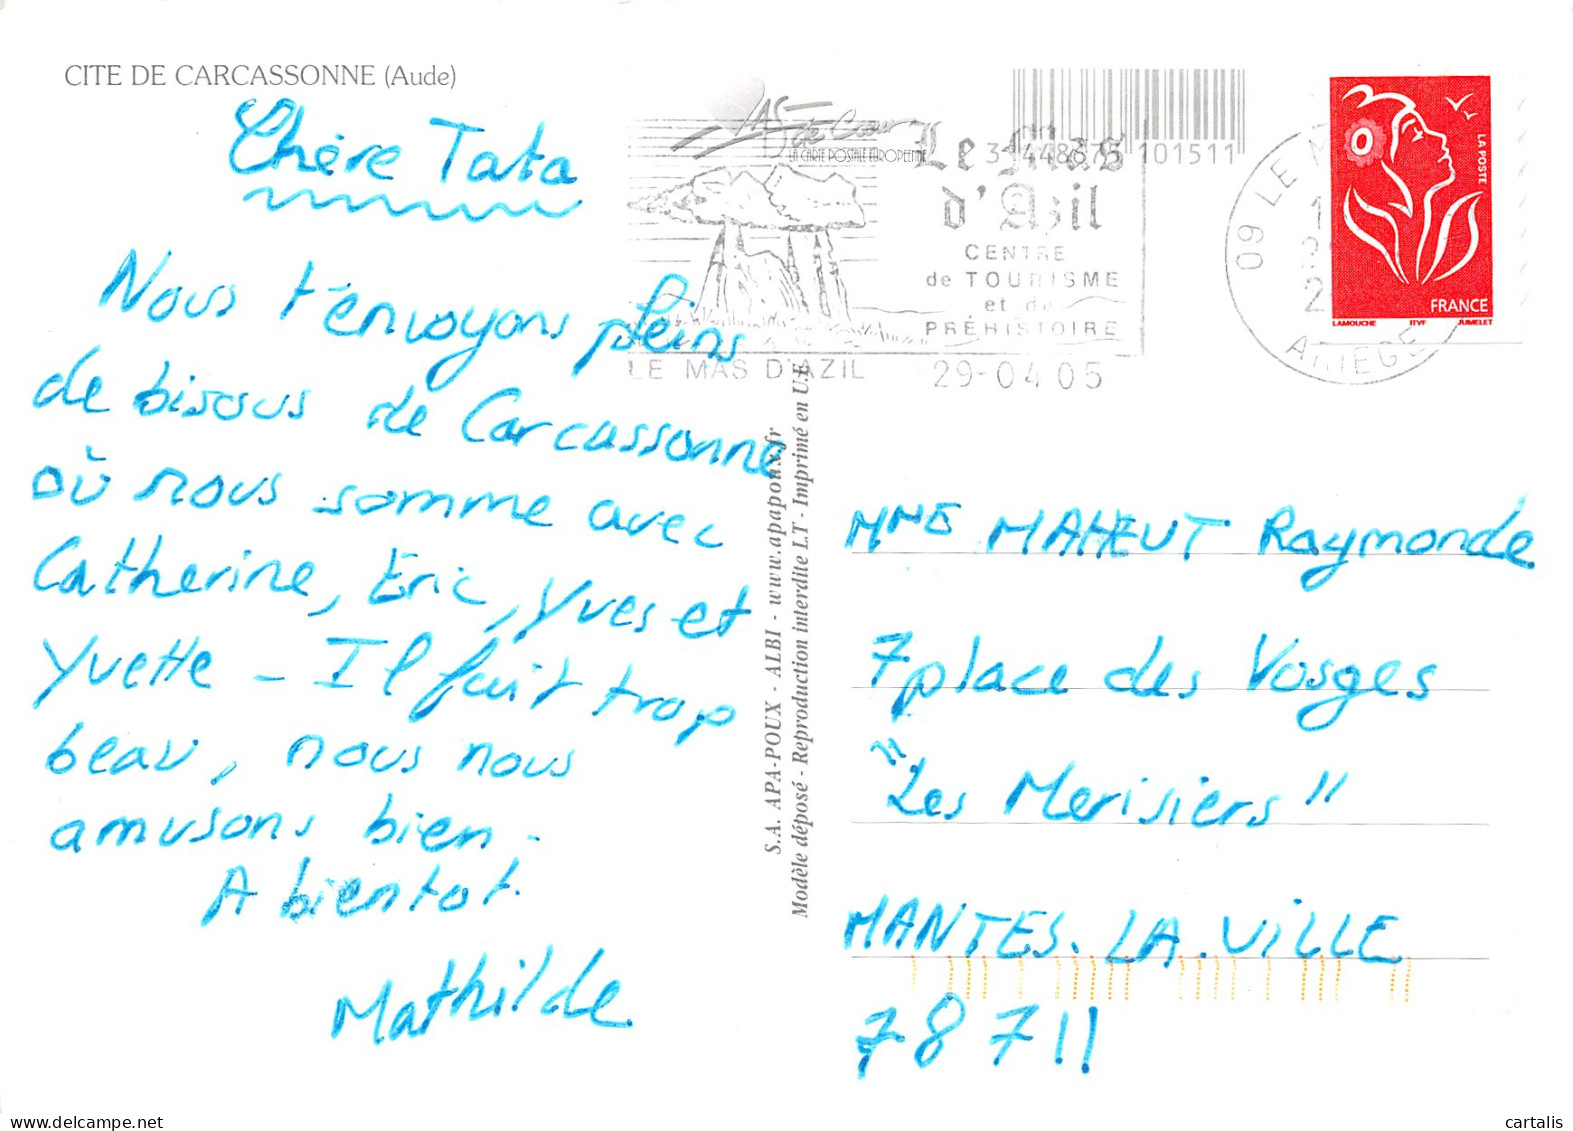 CITE DE CARCASSONNE (Aude)
Chère Tata
Nous t'envoyons pleins
de bisous de Carcassonne
où nous somme avec
Catherine, Eric, Yves et
Yvette - Il fait trop
beau, nous nous
amusons bien -
A bientot.
Mathilde
AS de Cœur
LA CARTE POSTALE EUROPEENNE
101511
Le Mas
d'Azil
CENTRE
de TOURISME
et de
PRÉHISTOIRE
LE MAS D'AZIL
29-04 05
09 LE M
ARIEGE
LA POSTE
FRANCE
LAMOUCHE ITVF JUMELET
S.A. APA-POUX - ALBI - www.apapoux.fr
Modèle déposé - Reproduction interdite LT - Imprimé en U.E.
MME MAHEUT Raymonde
7 place des Vosges
"Les Merisiers"
MANTES. LA. VILLE
78711
cartalis